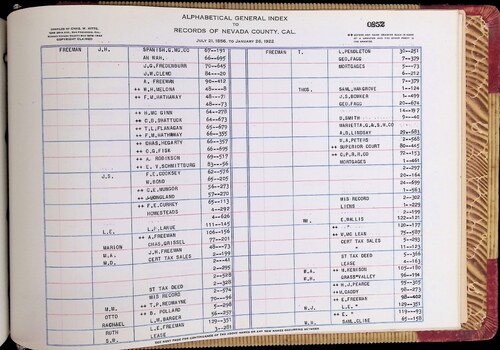 ALPHABETICAL GENERAL INDEX
TO
RECORDS OF NEVADA COUNTY, CAL.
0852
COPYRIGHT CLAIMED
FREEMAN J.H. SPANISH,G.MG.CO 67--195
AH WAH, 66--695
J.G.FREDENBURR 78--645
J.W.CLEND 84---20
A. FREEMAN 90--412
++ W.H.MELONA 48----8
++ F.M.HATHAWAY 48---71
48---73
++ H.MC GINN 64--278
++ C.D.SHATTUCK 64--673
++ T.L.FLANAGAN 65--679
++ F.M.HATHAWAY 66--355
++ CHAS,HEGARTY 66--357
++ C.G.FISK 66--695
++ A. ROBINSON 69--517
++ E. V.SCHNITTBURG 53---56
J.S. F.E.COOKSEY 62--576
N.BOND 65--205
++ C.E.MUNDOR 56--273
++ J.WONGLAND 57--270
++ F.E.CUNHEY 65--113
HOMESTEADS 4--292
4--626
L.E. L.P.LARUE 111--145
++ A.FREEMAN 106--156
MARION CHAS,GRISSEL 77--201
M.A. J.H.FREEMAN 48---73
W.D. CERT TAX SALES 2--199
2---41
2--295
2--528
ST TAX DEED 2--328
MIS RECORD 2--574
M.M. ++ T.P.REDMAYNE 70---98
OTTO ++ B. POLLARD 5--296
RACHAEL L.M.BARGER 56--257
RUTH L.E.FREEMAN 129--351
S.W. LEASE 3--281
FREEMAN T. L.PENGLETON 30--251
GEO.FAGG 7--379
MORTGAGES 5---73
6--212
7--379
THOS. SAML,HANGROVE 1--124
J.S.BOWKER 1--499
GEO.FAGG 20--674
14--197
H.SMITH 9---40
MARIETTA,G.& S.M.CO
A.D.LINDSAY 29--683
H.A.PETERS 3--568
++ SUPERIOR COURT 80--445
++ C.P.R.R.CO 77--153
MORTGAGES 1--461
2--297
20--164
24--699
1--563
MIS RECORD 2--302
LIENS 1>-225
2--199
WM. E.WALLIS 122--121
++ " 120--177
++ W.MC LEAN 75--587
CERT TAX SALES 5--293
" 11--123
ST TAX DEED 5--366
LEASE 4--163
W.A. ++ M.KENISON 105--180
W.H. ++ GRASS VALLEY 96--194
++ M.J.PEARCE 75--305
++ H.CADDY 98--273
++ E.FREEMAN 98--402
W.J. ++ L.E. " 129--351
++ E. " 119---83
W.S. SAML,CLINE 65--158